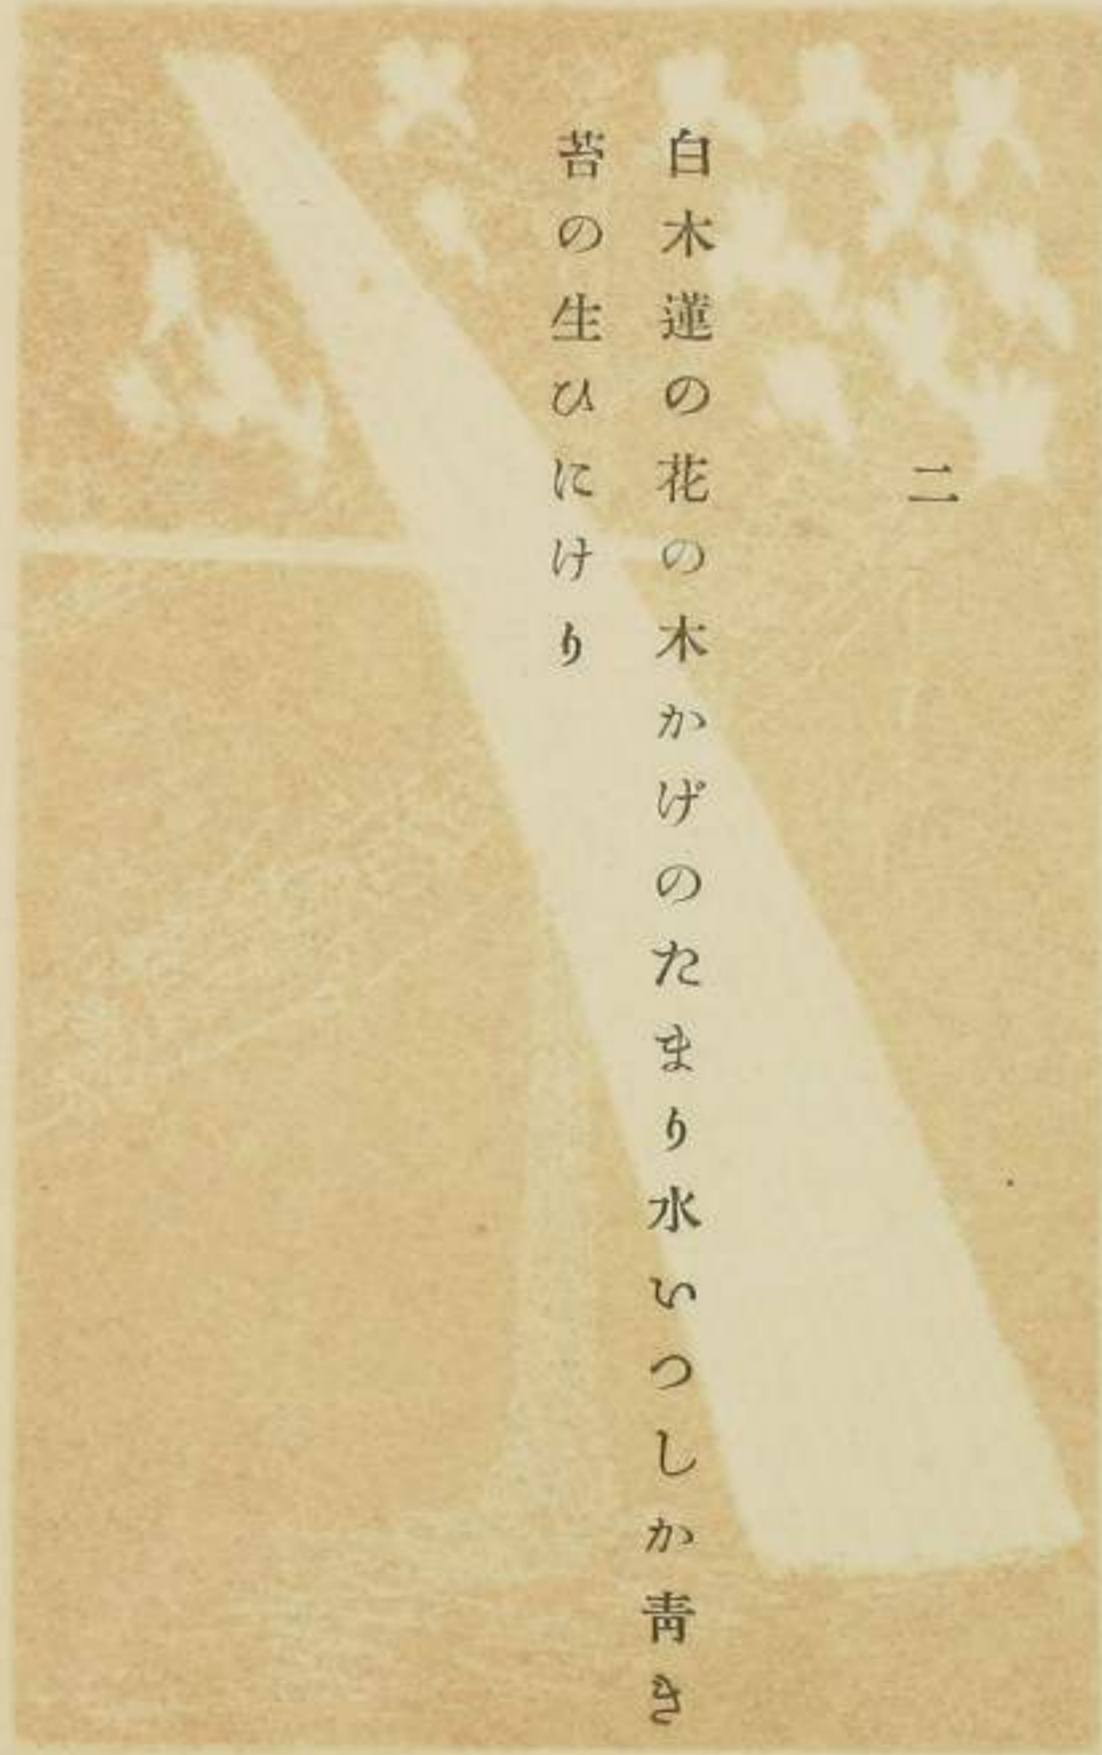 二
白木蓮の花の木かげのたまり水いつしか靑き
苔の生ひにけり